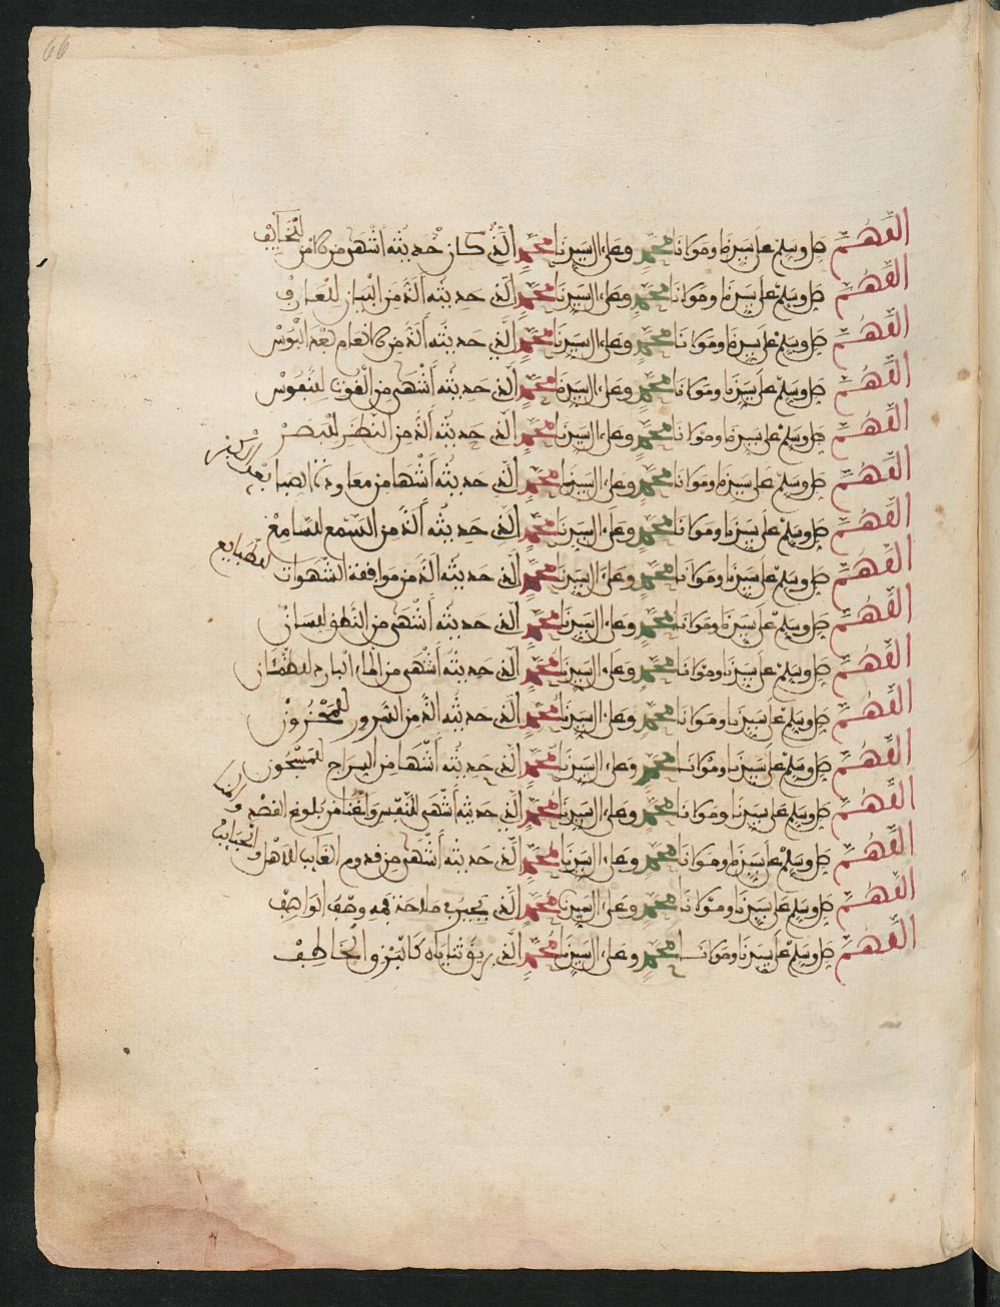 66
اللهم صل وسلم على سيدنا ومولانا محمد وعلى ءال سيدنا محمد الذي كان حديثه أشهى من الامن للخايف
اللهم صل وسلم على سيدنا ومولانا محمد وعلى ءال سيدنا محمد الذي حديثه ألذ من البيان للعارف
اللهم صل وسلم على سيدنا ومولانا محمد وعلى ءال سيدنا محمد الذي حديثه ألذ من الانعام بعد البوس
اللهم صل وسلم على سيدنا ومولانا محمد وعلى ءال سيدنا محمد الذي حديثه أشهى من القوت للنفوس
اللهم صل وسلم على سيدنا ومولانا محمد وعلى ءال سيدنا محمد الذي حديثه ألذ من النظر للبصر
اللهم صل وسلم على سيدنا ومولانا محمد وعلى ءال سيدنا محمد الذي حديثه أشها من معاودة الصبا بعد الكبر
اللهم صل وسلم على سيدنا ومولانا محمد وعلى ءال سيدنا محمد الذي حديثه ألذ من السمع للسامع
اللهم صل وسلم على سيدنا ومولانا محمد وعلى ءال سيدنا محمد الذي حديثه ألذ من موافقة الشهوات للطبايع
اللهم صل وسلم على سيدنا ومولانا محمد وعلى ءال سيدنا محمد الذي حديثه أشهى من النطق للسان
اللهم صل وسلم على سيدنا ومولانا محمد وعلى ءال سيدنا محمد الذي حديثه أشهى من الماء البارد للظمئان
اللهم صل وسلم على سيدنا ومولانا محمد وعلى ءال سيدنا محمد الذي حديثه ألذ من السرور للمحزون
اللهم صل وسلم على سيدنا ومولانا محمد وعلى ءال سيدنا محمد الذي حديثه أشها من السراح للمسجون
اللهم صل وسلم على سيدنا ومولانا محمد وعلى ءال سيدنا محمد الذي حديثه أشهى للنفس من بلوغ القصد و المنا
اللهم صل وسلم على سيدنا ومولانا محمد وعلى ءال سيدنا محمد الذي حديثه أشهى من قدوم الغائب للاهل والحبايب
اللهم صل وسلم على سيدنا ومولانا محمد وعلى ءال سيدنا محمد الذي ملاحة فمه وصف الواصف
اللهم صل وسلم على سيدنا ومولانا محمد وعلى ءال سيدنا محمد الذي بريق ثناياه كالبرق الخاطف